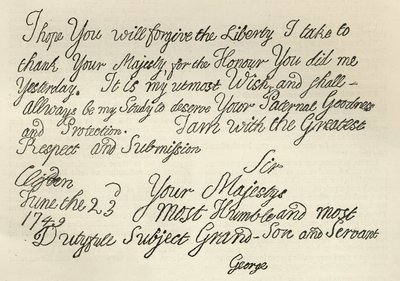 I hope You will forgive the Liberty I take to
thank Your Majesty, for the Honour You did me
Yesterday. It is my utmost Wish, and shall-
allways be my Study to deserve Your Paternal Goodness
and Protection. I am with the Greatest
Respect and Submission
Sir
Clifden
June the 23d
Your Majestys
1749
Most Humble and most
Dutyfull Subject Grand-Sone and Servant
George